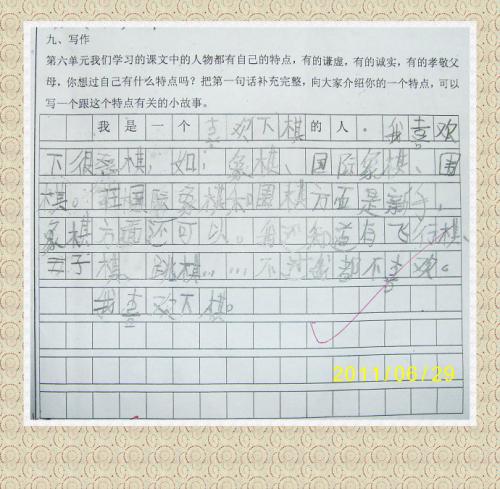 九、写作
第六单元我们学习的课文中的人物都有自己的特点，有的谦虚，有的诚实，有的孝敬父
母，你想过自己有什么特点吗？把第一句话补充完整，向大家介绍你的一个特点，可以
写一个跟这个特点有关的小故事。
我是一个喜欢下棋的人。我喜欢
下很多棋，如：象棋、国际象棋、围
棋。在国际象棋和围棋方面是新手，
象棋方面还可以。我还知道有飞行棋、
五子棋、跳棋……不过我都不喜欢。
我喜欢下棋。
2011/06/29